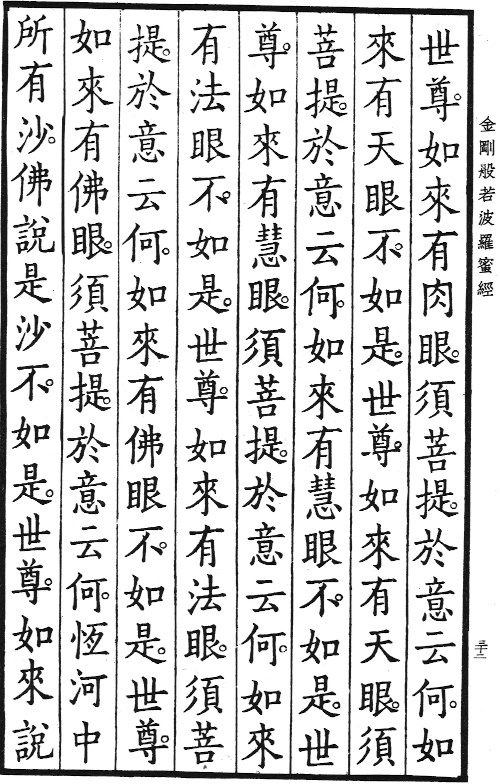 金剛般若波羅蜜經
三十二
世尊。如來有肉眼。須菩提。於意云何。如
來有天眼不。如是。世尊。如來有天眼。須
菩提。於意云何。如來有慧眼不。如是。世
尊。如來有慧眼。須菩提。於意云何。如來
有法眼不。如是。世尊。如來有法眼。須菩
提。於意云何。如來有佛眼不。如是。世尊。
如來有佛眼。須菩提。於意云何。恆河中
所有沙。佛說是沙不。如是。世尊。如來說